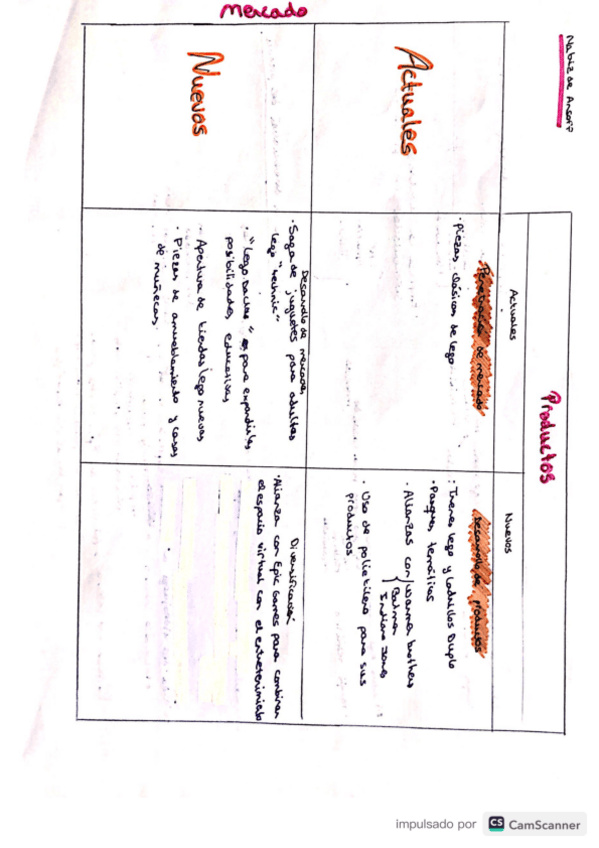 Matriz de Ansoff
Productos
Mercado
Actuales
Nuevos
Actuales
Penetración de mercado
· Piezas clásicas de lego
Desarrollo de productos
· Trenes lego y ladrillos Duplo
· Parques temáticos
· Alianzas con Warner brothers
Batman
Indiana Jones
· Uso de polietileno para sus
productos.
Nuevos
Desarrollo de mercados
· Saga de juguetes para adultos
lego "technic"
· "Lego Dactas" es para expandir las
posibilidades educativas
· Apertura de tiendas lego nuevas
· Piezas de amueblamiento y casas
de muñecas.
Diversificación
· Alianza con Epic Games para combinar
el espacio virtual con el entretenimiento
impulsado por CS CamScanner